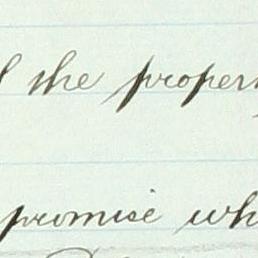 the proper
promise wh